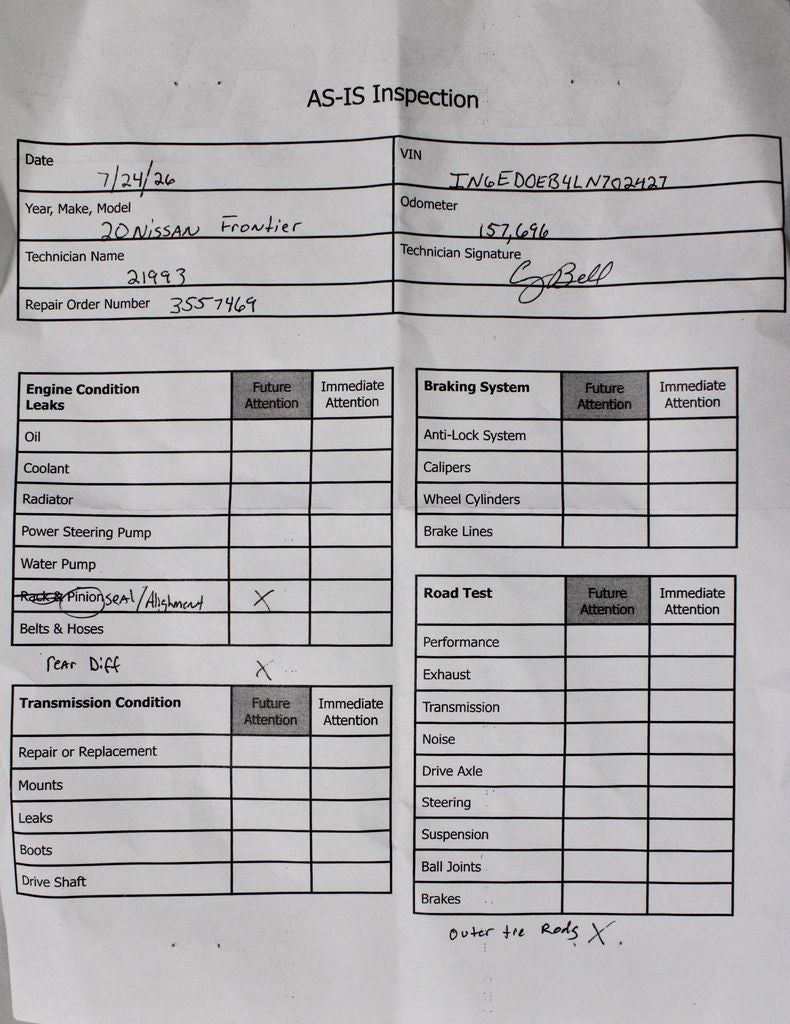 AS-IS Inspection
Date 7/24/26
VIN IN6EDOEB4LN702427
Year, Make, Model 20 NISSAN Frontier
Odometer 157,696
Technician Name 21993
Technician Signature Bell
Repair Order Number 3557469
Engine Condition Leaks Future Attention Immediate Attention
Oil
Coolant
Radiator
Power Steering Pump
Water Pump
Rack & Pinion SEAL/Alighment X
Belts & Hoses
rear Diff X
Transmission Condition Future Attention Immediate Attention
Repair or Replacement
Mounts
Leaks
Boots
Drive Shaft
Braking System Future Attention Immediate Attention
Anti-Lock System
Calipers
Wheel Cylinders
Brake Lines
Road Test Future Attention Immediate Attention
Performance
Exhaust
Transmission
Noise
Drive Axle
Steering
Suspension
Ball Joints
Brakes
outer tie Rods X.